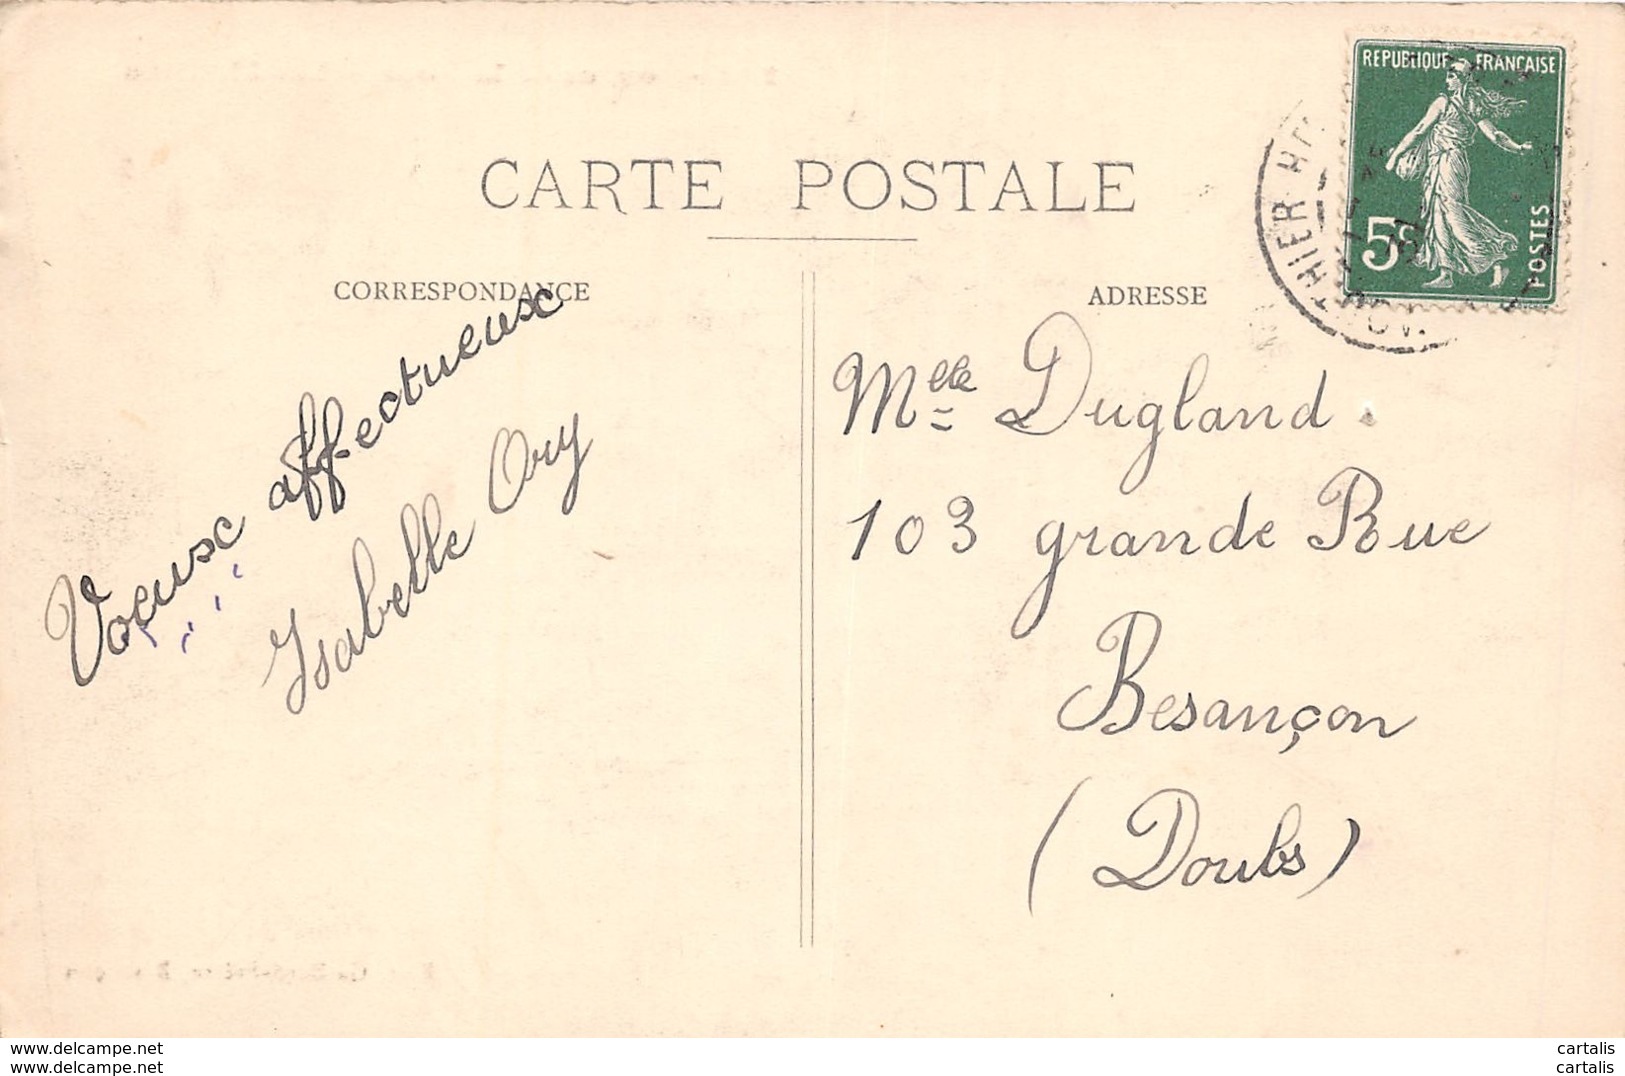 REPUBLIQUE FRANÇAISE
5c
POSTES
CARTE POSTALE
CORRESPONDANCE
ADRESSE
Voeux affectueux
Isabelle Ory
Mlle Dugland
103 grande Rue
Besançon
(Doubs)
www.delcampe.net
www.delcampe.net
cartalis
cartalis